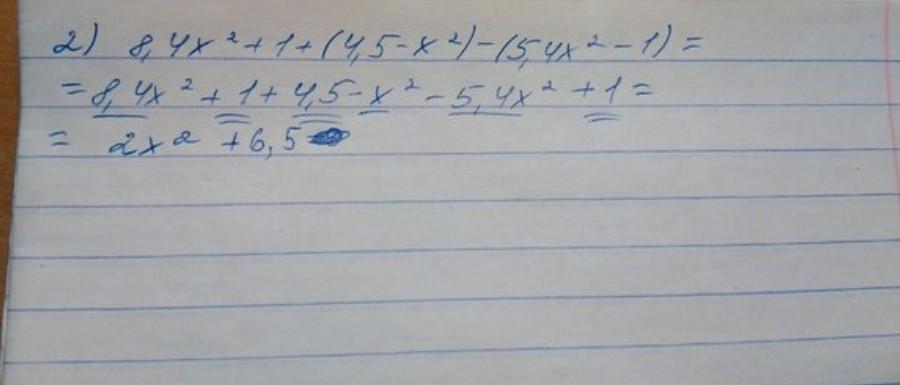 2) 8,4x² + 1 + (4,5 - x²) - (5,4x² - 1) =
= 8,4x² + 1 + 4,5 - x² - 5,4x² + 1 =
= 2x² + 6,5